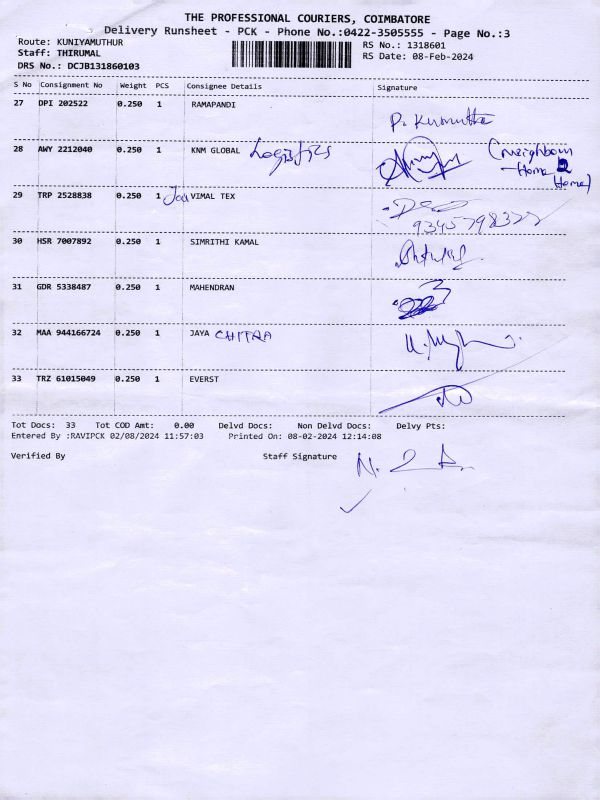 THE PROFESSIONAL COURIERS, COIMBATORE
Delivery Runsheet - PCK - Phone No.:0422-3505555 - Page No.:3
Route: KUNIYAMUTHUR RS No.: 1318601
Staff: THIRUMAL RS Date: 08-Feb-2024
DRS No.: DCJB131860103
S No Consignment No Weight PCS Consignee Details Signature
27 DPI 202522 0.250 1 RAMAPANDI
P. Kumutha
28 AWY 2212040 0.250 1 KNM GLOBAL Logistics
(neighbour
Home
Home)
29 TRP 2528838 0.250 1 Jaa VIMAL TEX
9345798322
30 HSR 7007892 0.250 1 SIMRITHI KAMAL
31 GDR 5338487 0.250 1 MAHENDRAN
32 MAA 944166724 0.250 1 JAYA CHITRA
33 TRZ 61015049 0.250 1 EVERST
Tot Docs: 33 Tot COD Amt: 0.00 Delvd Docs: Non Delvd Docs: Delvy Pts:
Entered By :RAVIPCK 02/08/2024 11:57:03 Printed On: 08-02-2024 12:14:08
Verified By Staff Signature